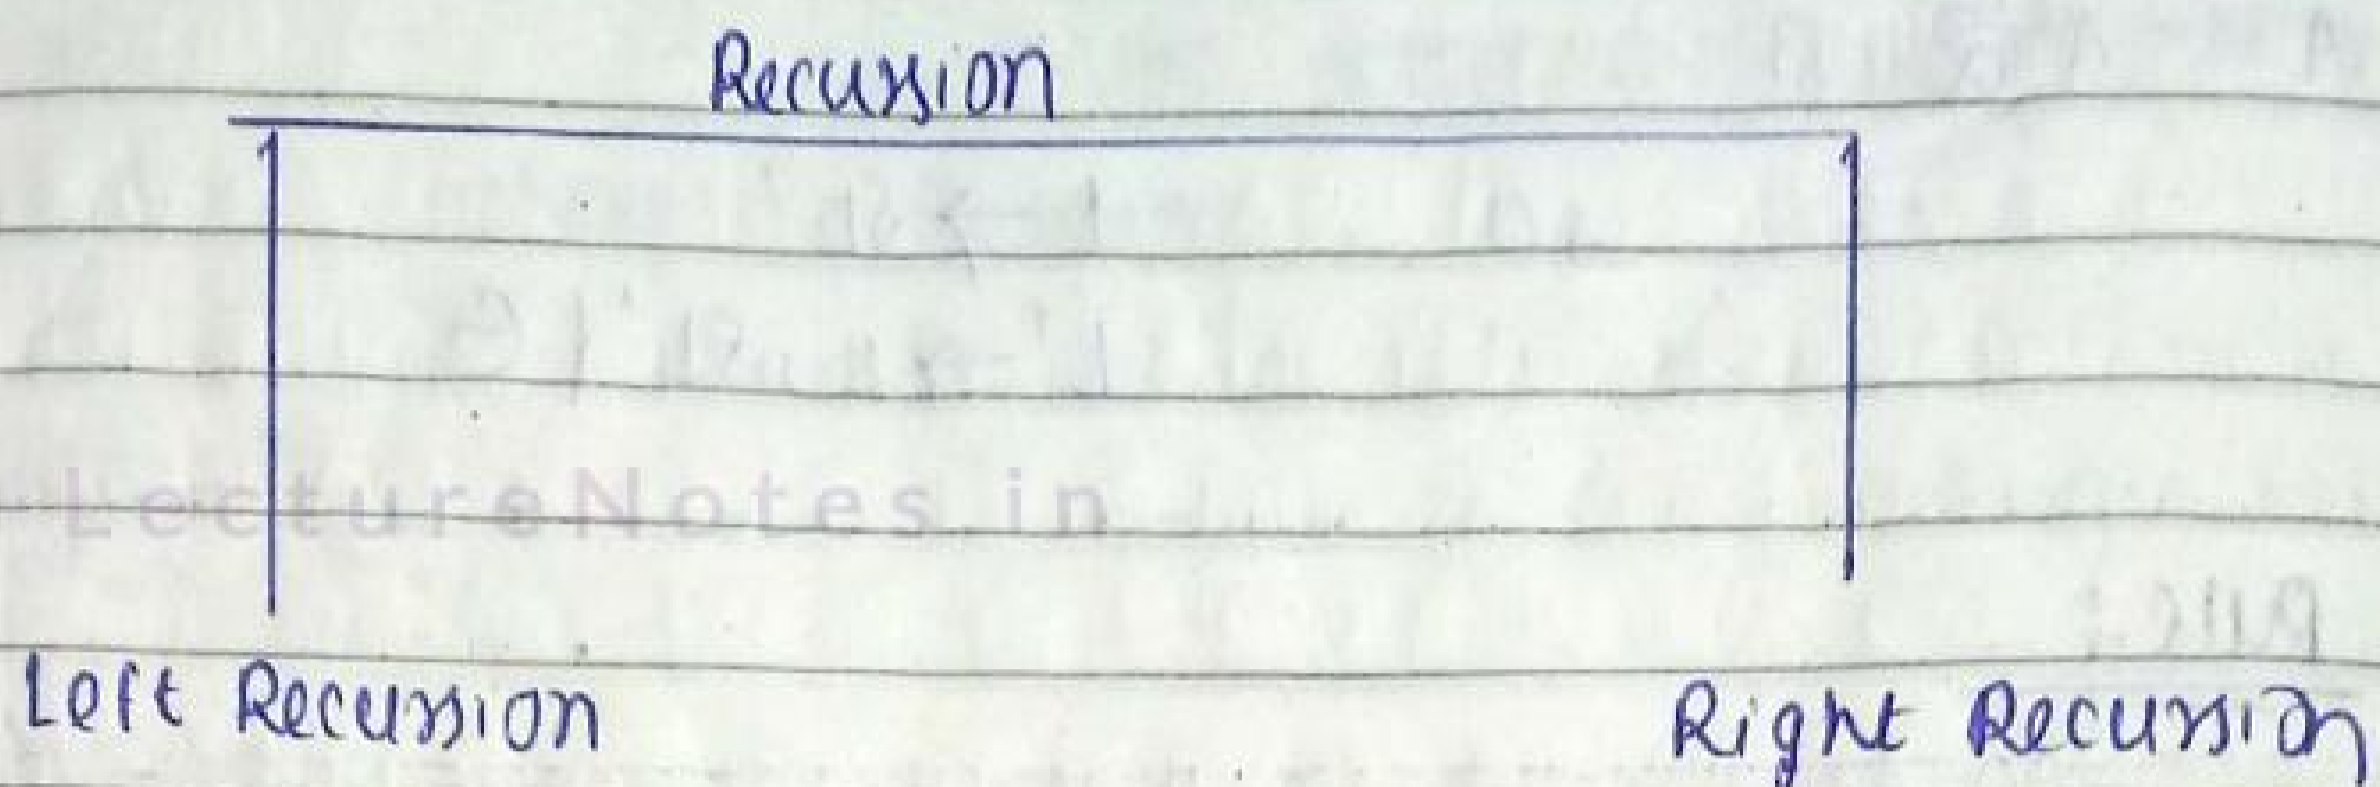 Recursion
LectureNotes.in
Left Recursion
Right Recursion